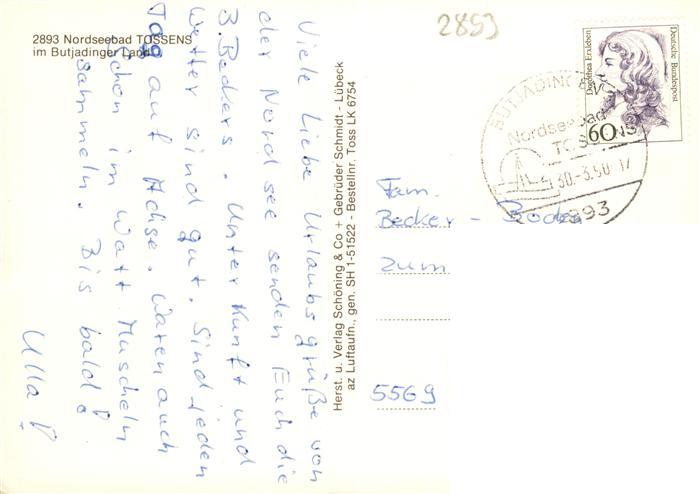 2893 Nordseebad TOSSENS
im Butjadinger Land
Viele liebe Urlaubsgrüße von
der Nordsee senden Euch die
3 Beckers. Unterkunft und
Wetter sind gut. Sind jeden
Tag auf Achse. Waren auch
schon im Watt Muscheln
sammeln. Bis bald!
Ulla!
Herst. u. Verlag Schöning & Co + Gebrüder Schmidt - Lübeck
az Luftaufn., gen. SH 1-51522 - Bestellnr. Toss LK 6754
2893
Dorothea Erxleben
Deutsche Bundespost
60
BUTJADINGEN
Nordseebad
TOSSENS
30.-3.90 17
2893
Fam.
Becker - Boden
zum
5569